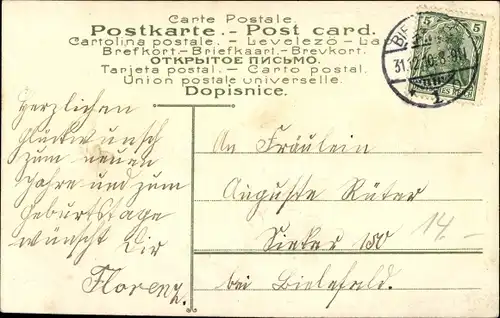 Carte Postale.
Postkarte. - Post card.
Cartolina postale. - Levelező - La
Brefkort. - Briefkaart. - Brevkort.
ОТКРЫТОЕ ПИСЬМО.
Tarjeta postal. - Carto postal.
Union postale universelle.
Dopisnice.
5 5
31.12.10.
Herzlichen
Glückwunsch
zum neuen
Jahre und zum
Geburtstage
wünscht Dir
Florenz.
An Fräulein
Auguste Rüter
Sieker 150
14.-
bei Bielefeld.